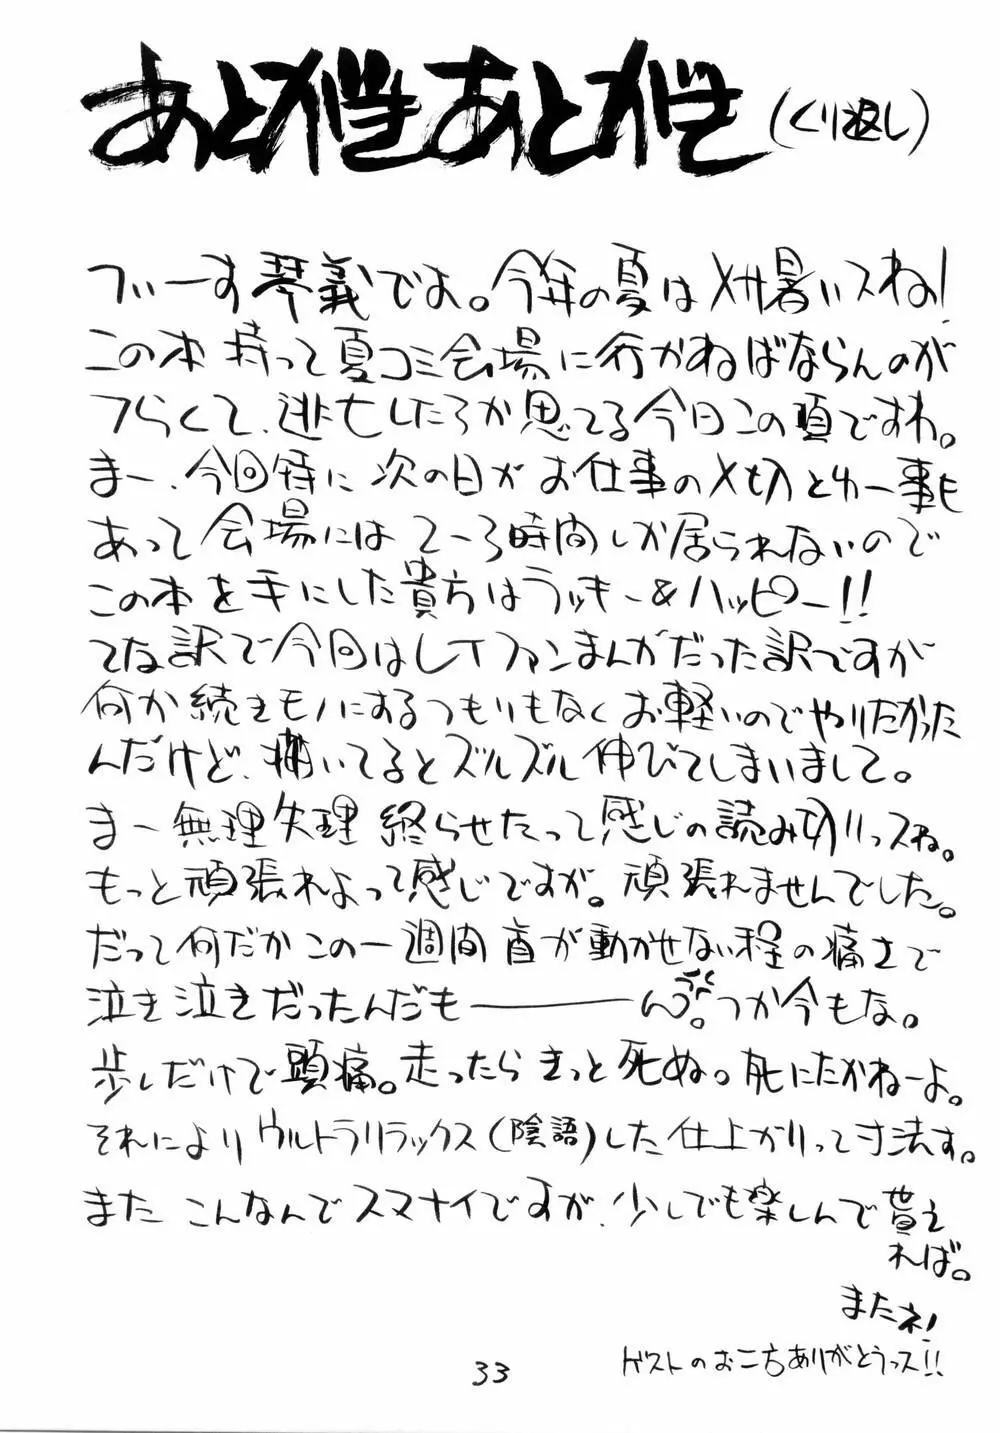 あとがきあとがき（くり返し）
ブいーす琴義でよ。今年の夏はメサ暑いスね!
この本持って夏コミ会場に行かねばならんのが
つらくて、逃亡したろか思てる今日この頃ですわ。
まー、今回特に次の日がお仕事の〆切とゆー事も
あって会場には2〜3時間しか居られないので
この本を手にした貴方はラッキー&ハッピー!!
てな訳で今回はレイファンまんがだった訳ですが
何か続きモノにするつもりもなくお軽いのでやりたかった
んだけど、描いてるとズルズル伸びてしまいまして。
まー無理矢理終らせたって感じの読み切りっスね。
もっと頑張れよって感じですが。頑張れませんでした。
だって何だかこの一週間首が動かせない程の痛さで
泣き泣きだったんだも――――ん。つか今もな。
歩くだけで頭痛。走ったらきっと死ぬ。死にたかねーよ。
それによりウルトラリラックス(陰語)した仕上がりって寸法す。
またこんなんでスマナイですが、少しでも楽しんで貰え
れば。
またネ!
ゲストのお二方ありがとうっス!!
33